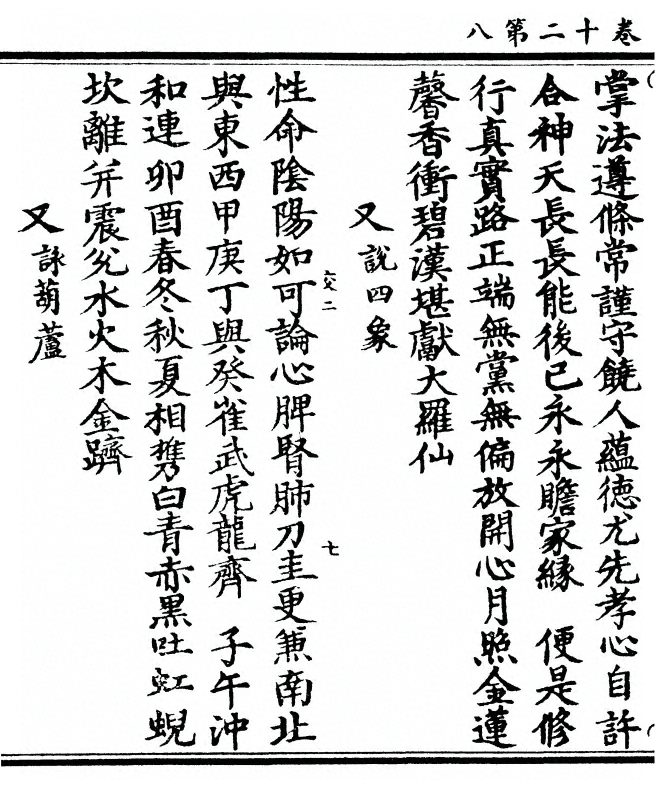 卷十二第八
掌法遵條常謹守饒人蘊德尤先孝心自許
合神天長長能後已永永瞻家緣　便是修
行真實路正端無黨無偏放開心月照金蓮
馨香衝碧漢堪獻大羅仙
又說四象
性命陰陽如可論心脾腎肺刀圭更兼南北
交二
七
與東西甲庚丁與癸雀武虎龍齊　子午沖
和連卯酉春冬秋夏相攜白青赤黑吐虹蜺
坎離并震兌水火木金躋
又詠葫蘆